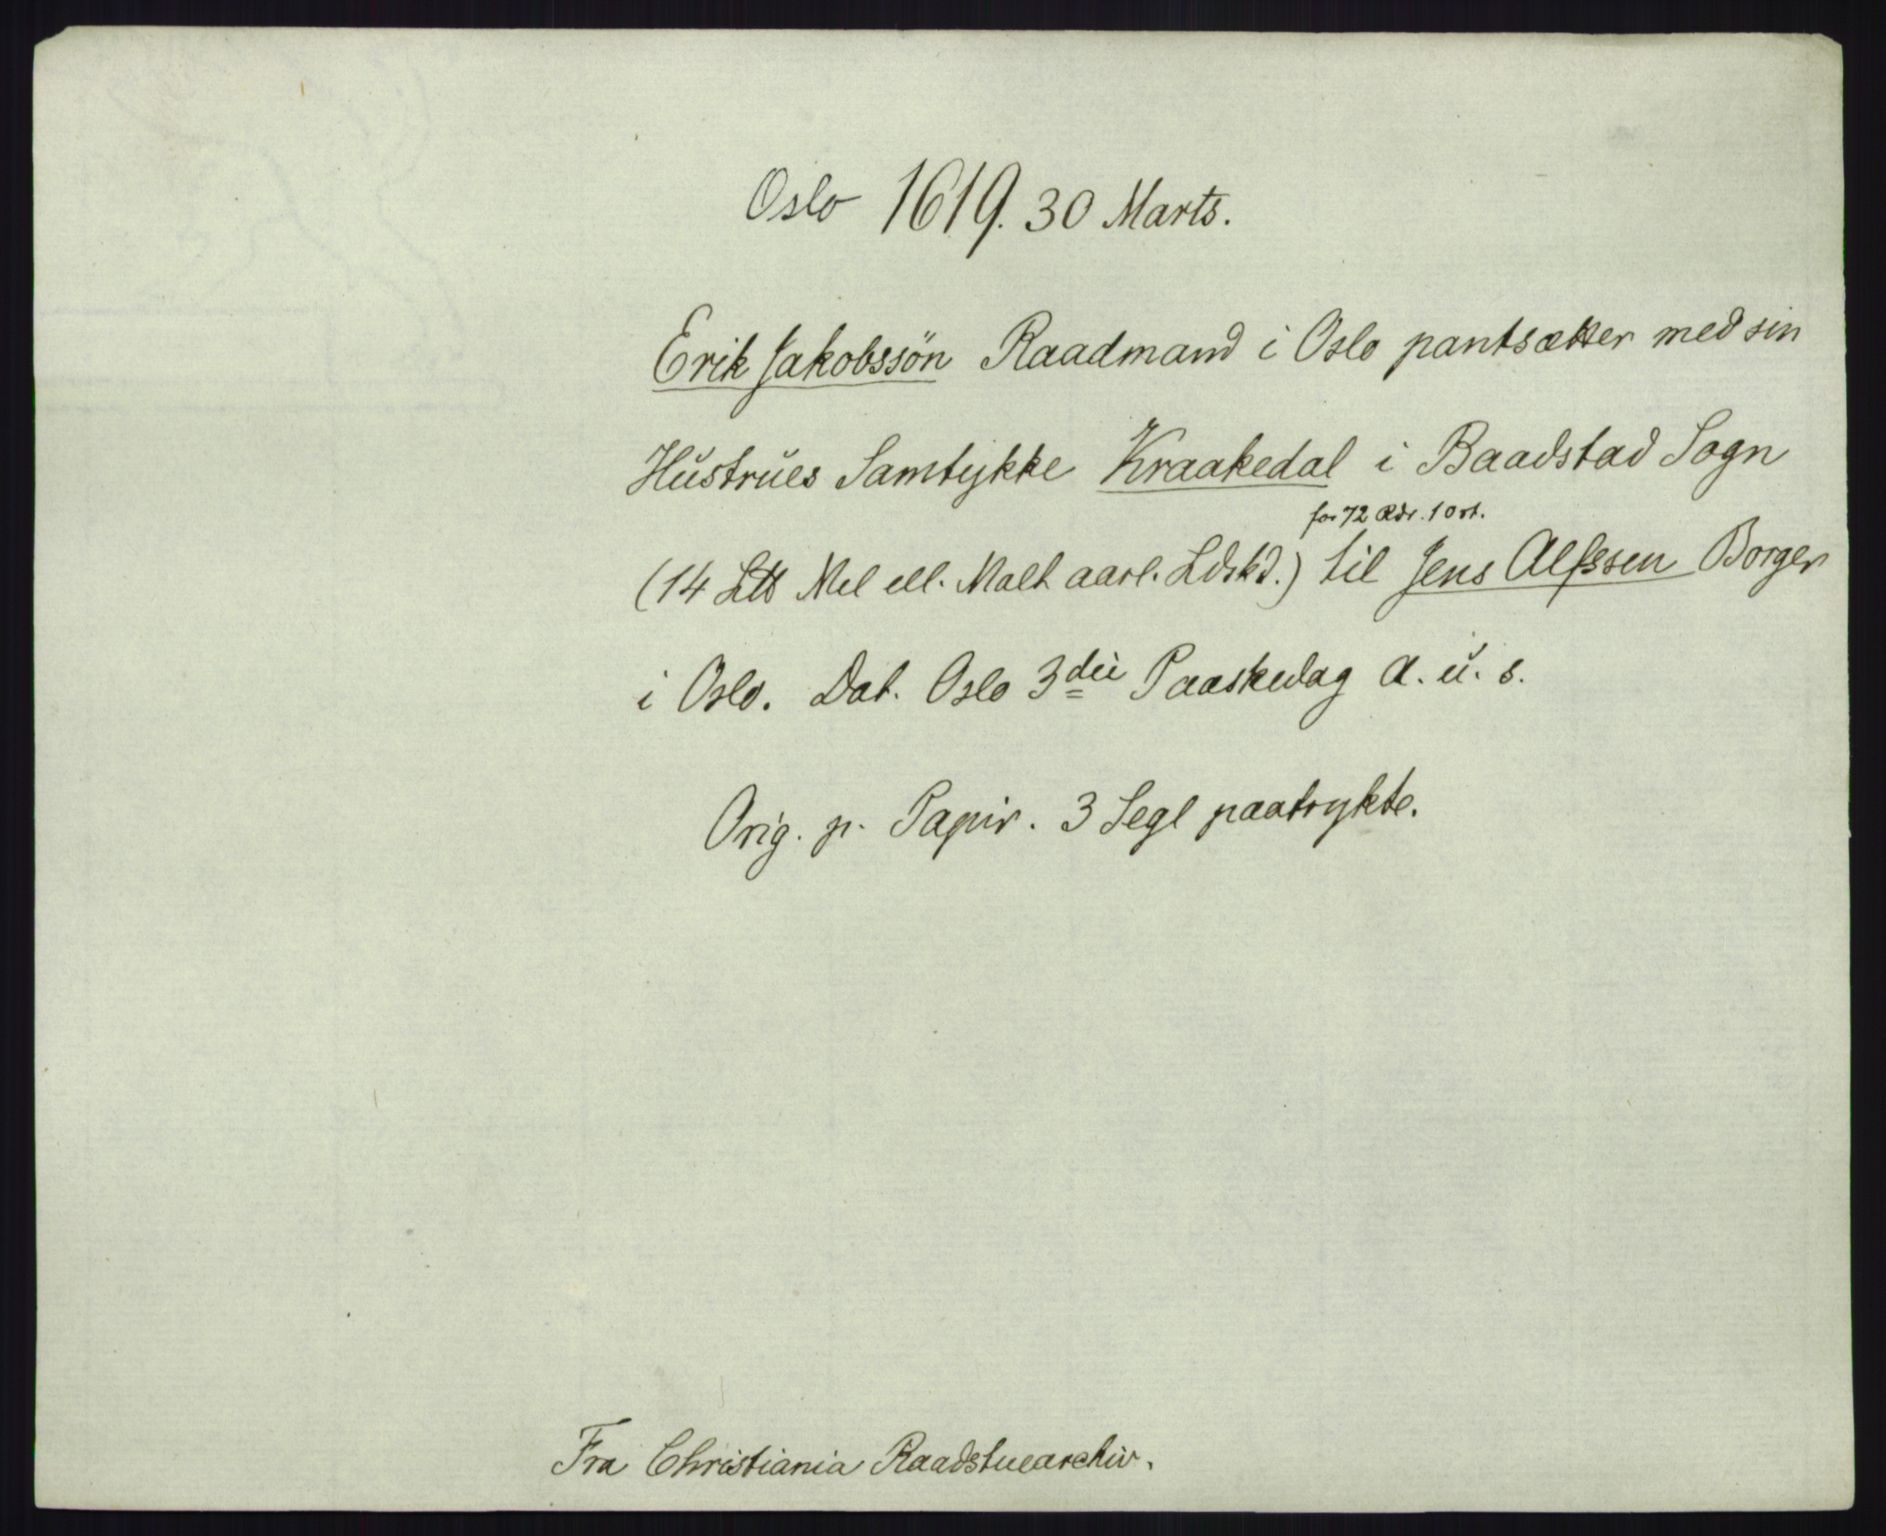 Oslo 1619. 30 Marts.
Erik Jakobssön Raadmand i Oslo pantsætter med sin
Hŭstrŭes Samtykke Kraakedal i Baadstad Sogn
for 72 Rdr. 1 Ort.
(14 L℔ Mel ell. Malt aarl. Ldskd.) til Jens Alfssen Borger
i Oslo. Dat. Oslo 3die Paaskedag A. ŭ. s.
Orig. p. Papir. 3 Segl paatrykte.
Fra Christiania Raadstuearchiv.